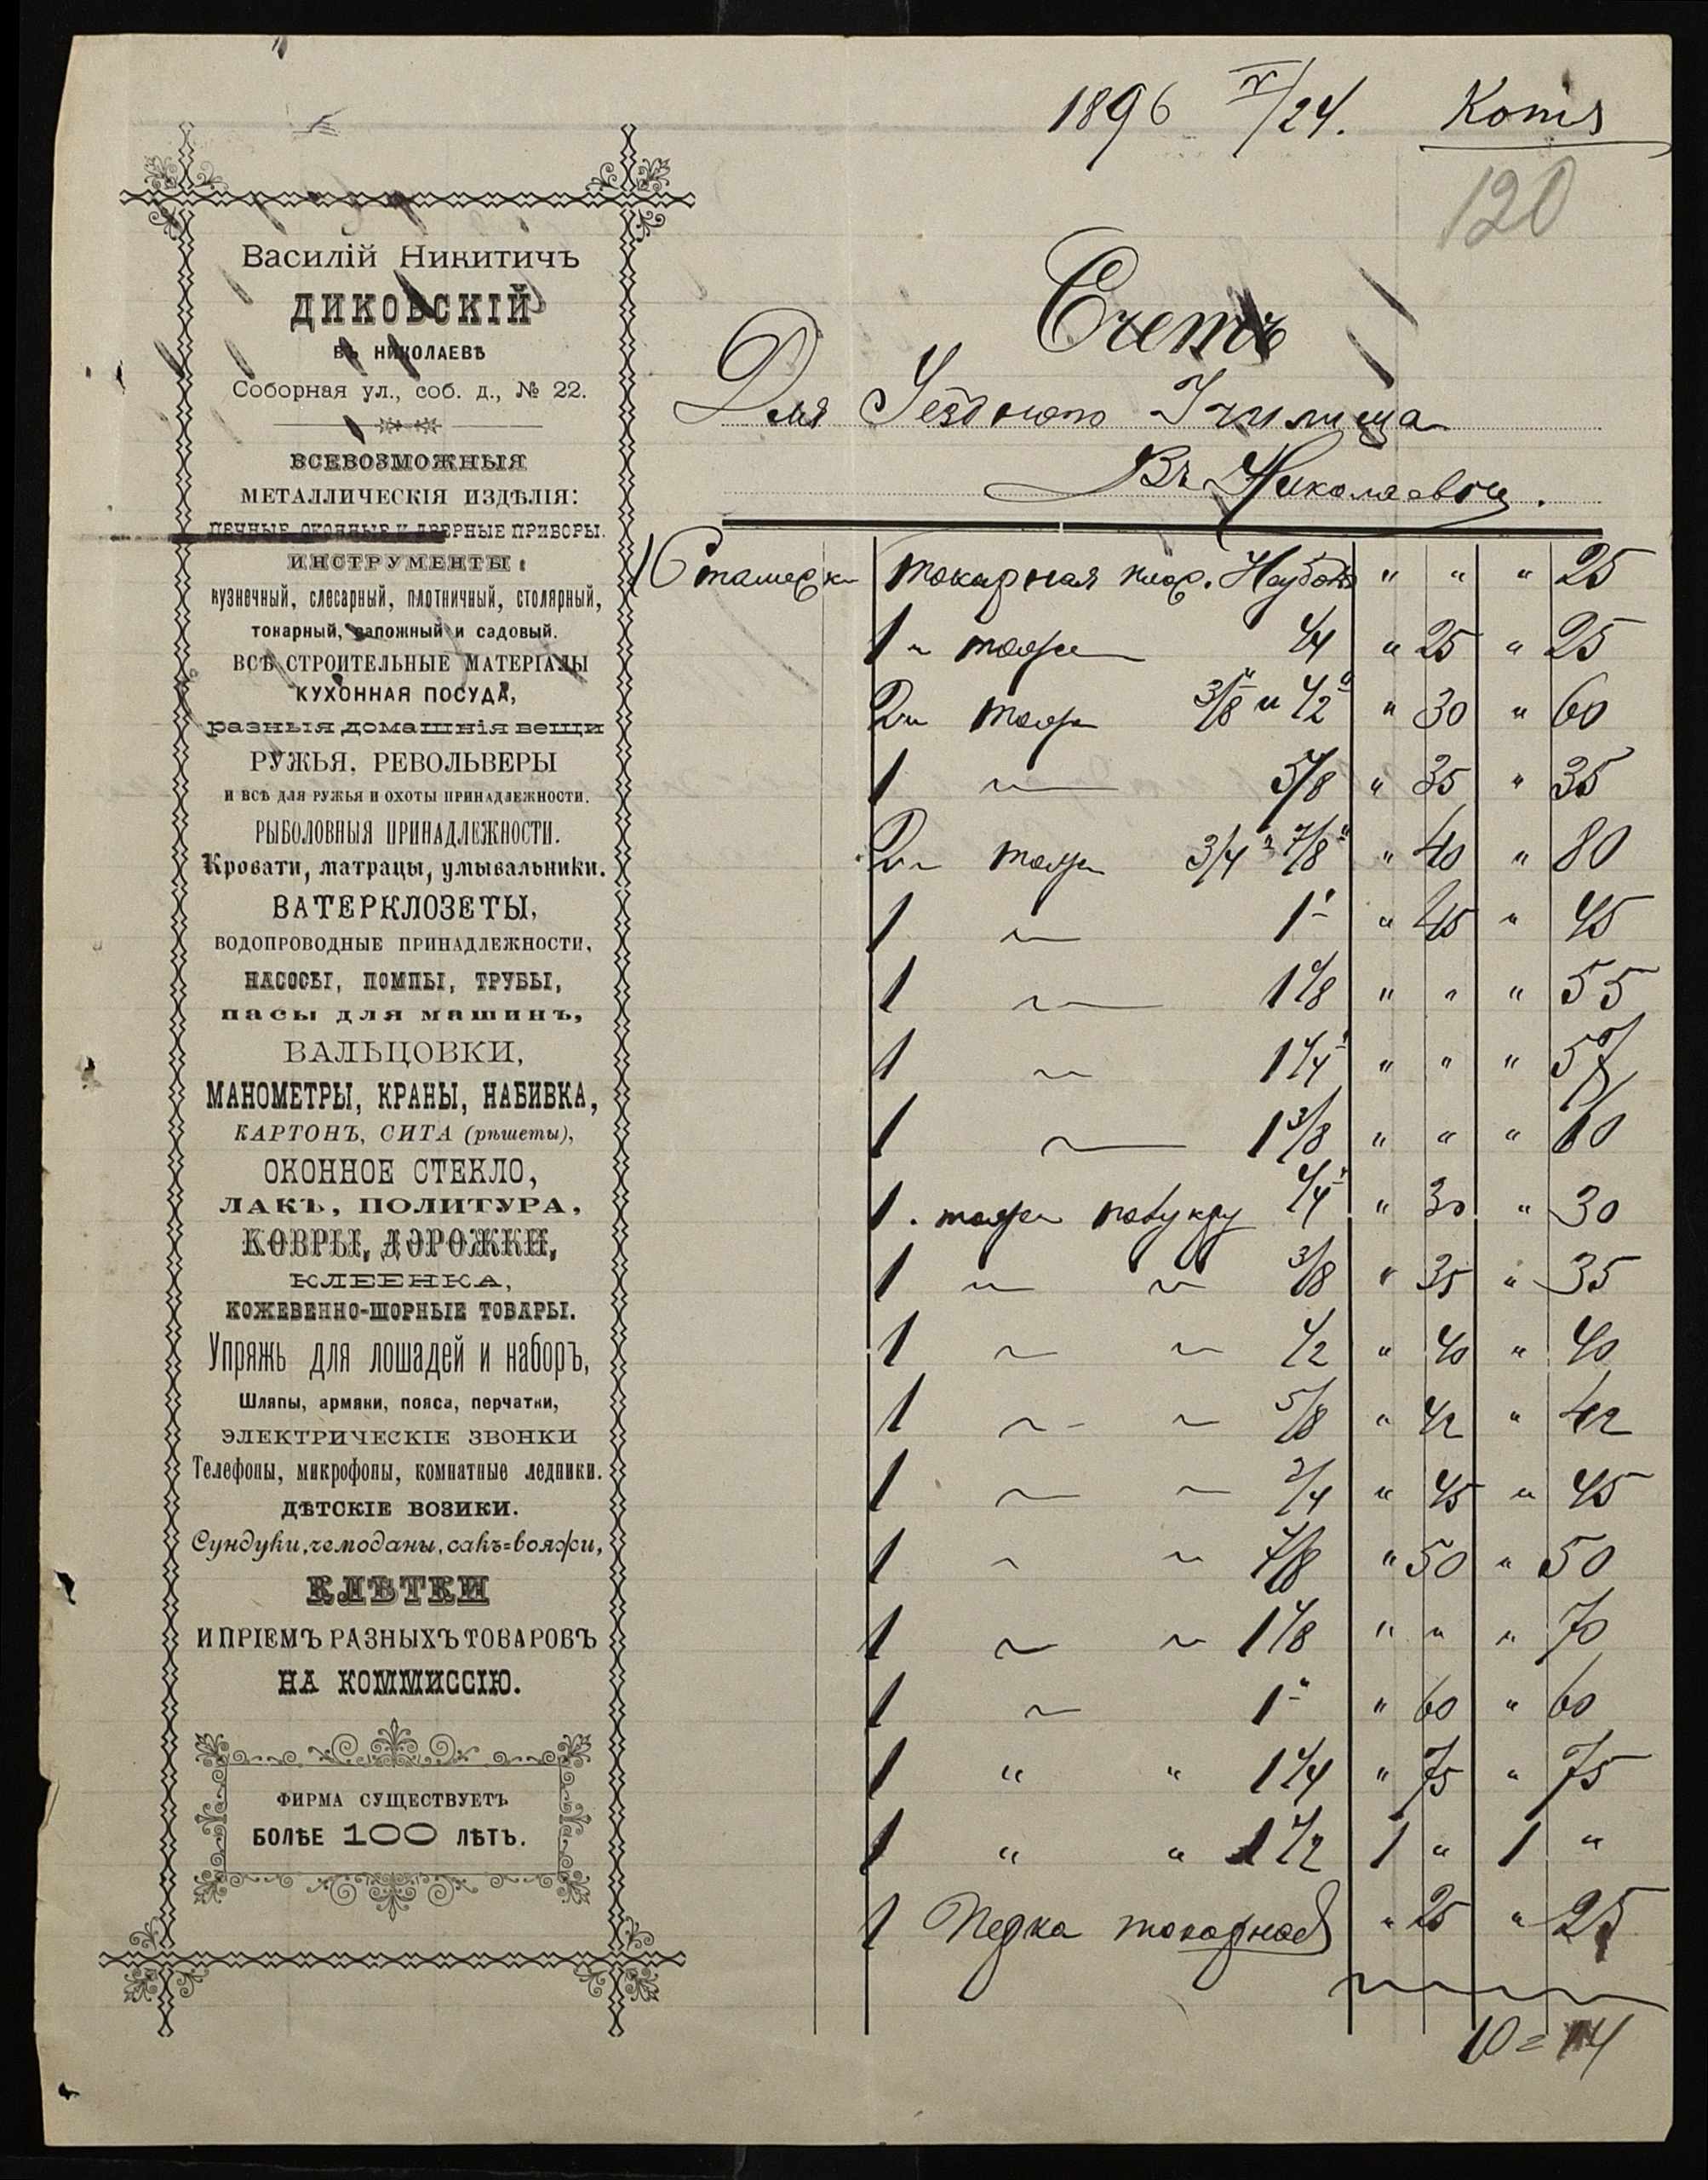 1896 X/24. Копія
120
Василій Никитичъ
ДИКОВСКІЙ
ВЪ НИКОЛАЕВѢ
Соборная ул., соб. д., № 22.
ВСЕВОЗМОЖНЫЯ
МЕТАЛЛИЧЕСКІЯ ИЗДѢЛІЯ:
ПЕЧНЫЕ, ОКОННЫЕ И ДВЕРНЫЕ ПРИБОРЫ.
ИНСТРУМЕНТЫ:
кузнечный, слесарный, плотничный, столярный,
токарный, сапожный и садовый.
ВСѢ СТРОИТЕЛЬНЫЕ МАТЕРІАЛЫ
КУХОННАЯ ПОСУДА,
разныя домашнія вещи
РУЖЬЯ, РЕВОЛЬВЕРЫ
И ВСѢ ДЛЯ РУЖЬЯ И ОХОТЫ ПРИНАДЛЕЖНОСТИ.
РЫБОЛОВНЫЯ ПРИНАДЛЕЖНОСТИ.
Кровати, матрацы, умывальники.
ВАТЕРКЛОЗЕТЫ,
ВОДОПРОВОДНЫЕ ПРИНАДЛЕЖНОСТИ,
НАСОСЫ, ПОМПЫ, ТРУБЫ,
пасы для машинъ,
ВАЛЬЦОВКИ,
МАНОМЕТРЫ, КРАНЫ, НАБИВКА,
КАРТОНЪ, СИТА (рѣшеты),
ОКОННОЕ СТЕКЛО,
ЛАКЪ, ПОЛИТУРА,
КОВРЫ, ДОРОЖКИ,
КЛЕЕНКА,
КОЖЕВЕННО-ШОРНЫЕ ТОВАРЫ.
Упряжь для лошадей и наборъ,
Шляпы, армяки, пояса, перчатки,
ЭЛЕКТРИЧЕСКІЕ ЗВОНКИ
Телефоны, микрофоны, комнатные ледники.
ДѢТСКІЕ ВОЗИКИ.
Сундуки, чемоданы, сакъ=вояжи,
КЛѢТКИ
И ПРІЕМЪ РАЗНЫХЪ ТОВАРОВЪ
НА КОММИССІЮ.
ФИРМА СУЩЕСТВУЕТЪ
БОЛѢЕ 100 ЛѢТЪ.
Счетъ
Для Уѣздного Училища
Въ Николаевѣ.
1 Стамеска токарная " " " 25
1 " тоже 1/4 " 25 " 25
2 " тоже 3/8" и 1/2" " 30 " 60
1 ~ 5/8 " 35 " 35
2 " тоже 3/4" 7/8" " 40 " 80
1 ~ 1" " 45 " 45
1 ~ 1 1/8 " " " 55
1 ~ 1 1/4" " " "
1 ~ 1 3/8 " " " 60
1 . тоже полукру 1/4" " 30 " 30
1 ~ ~ 3/8 " 35 " 35
1 ~ ~ 1/2 " 40 " 40
1 ~ ~ 5/8 " 42 " 42
1 ~ ~ 3/4 " 45 " 45
1 ~ ~ 7/8 " 50 " 50
1 ~ ~ 1 1/8 " " " 70
1 ~ 1" " 60 " 60
1 " " 1 1/4 " 75 " 75
1 " " 1 1/2 1 " 1 "
1 токарная " 25 " 25
10 = 14